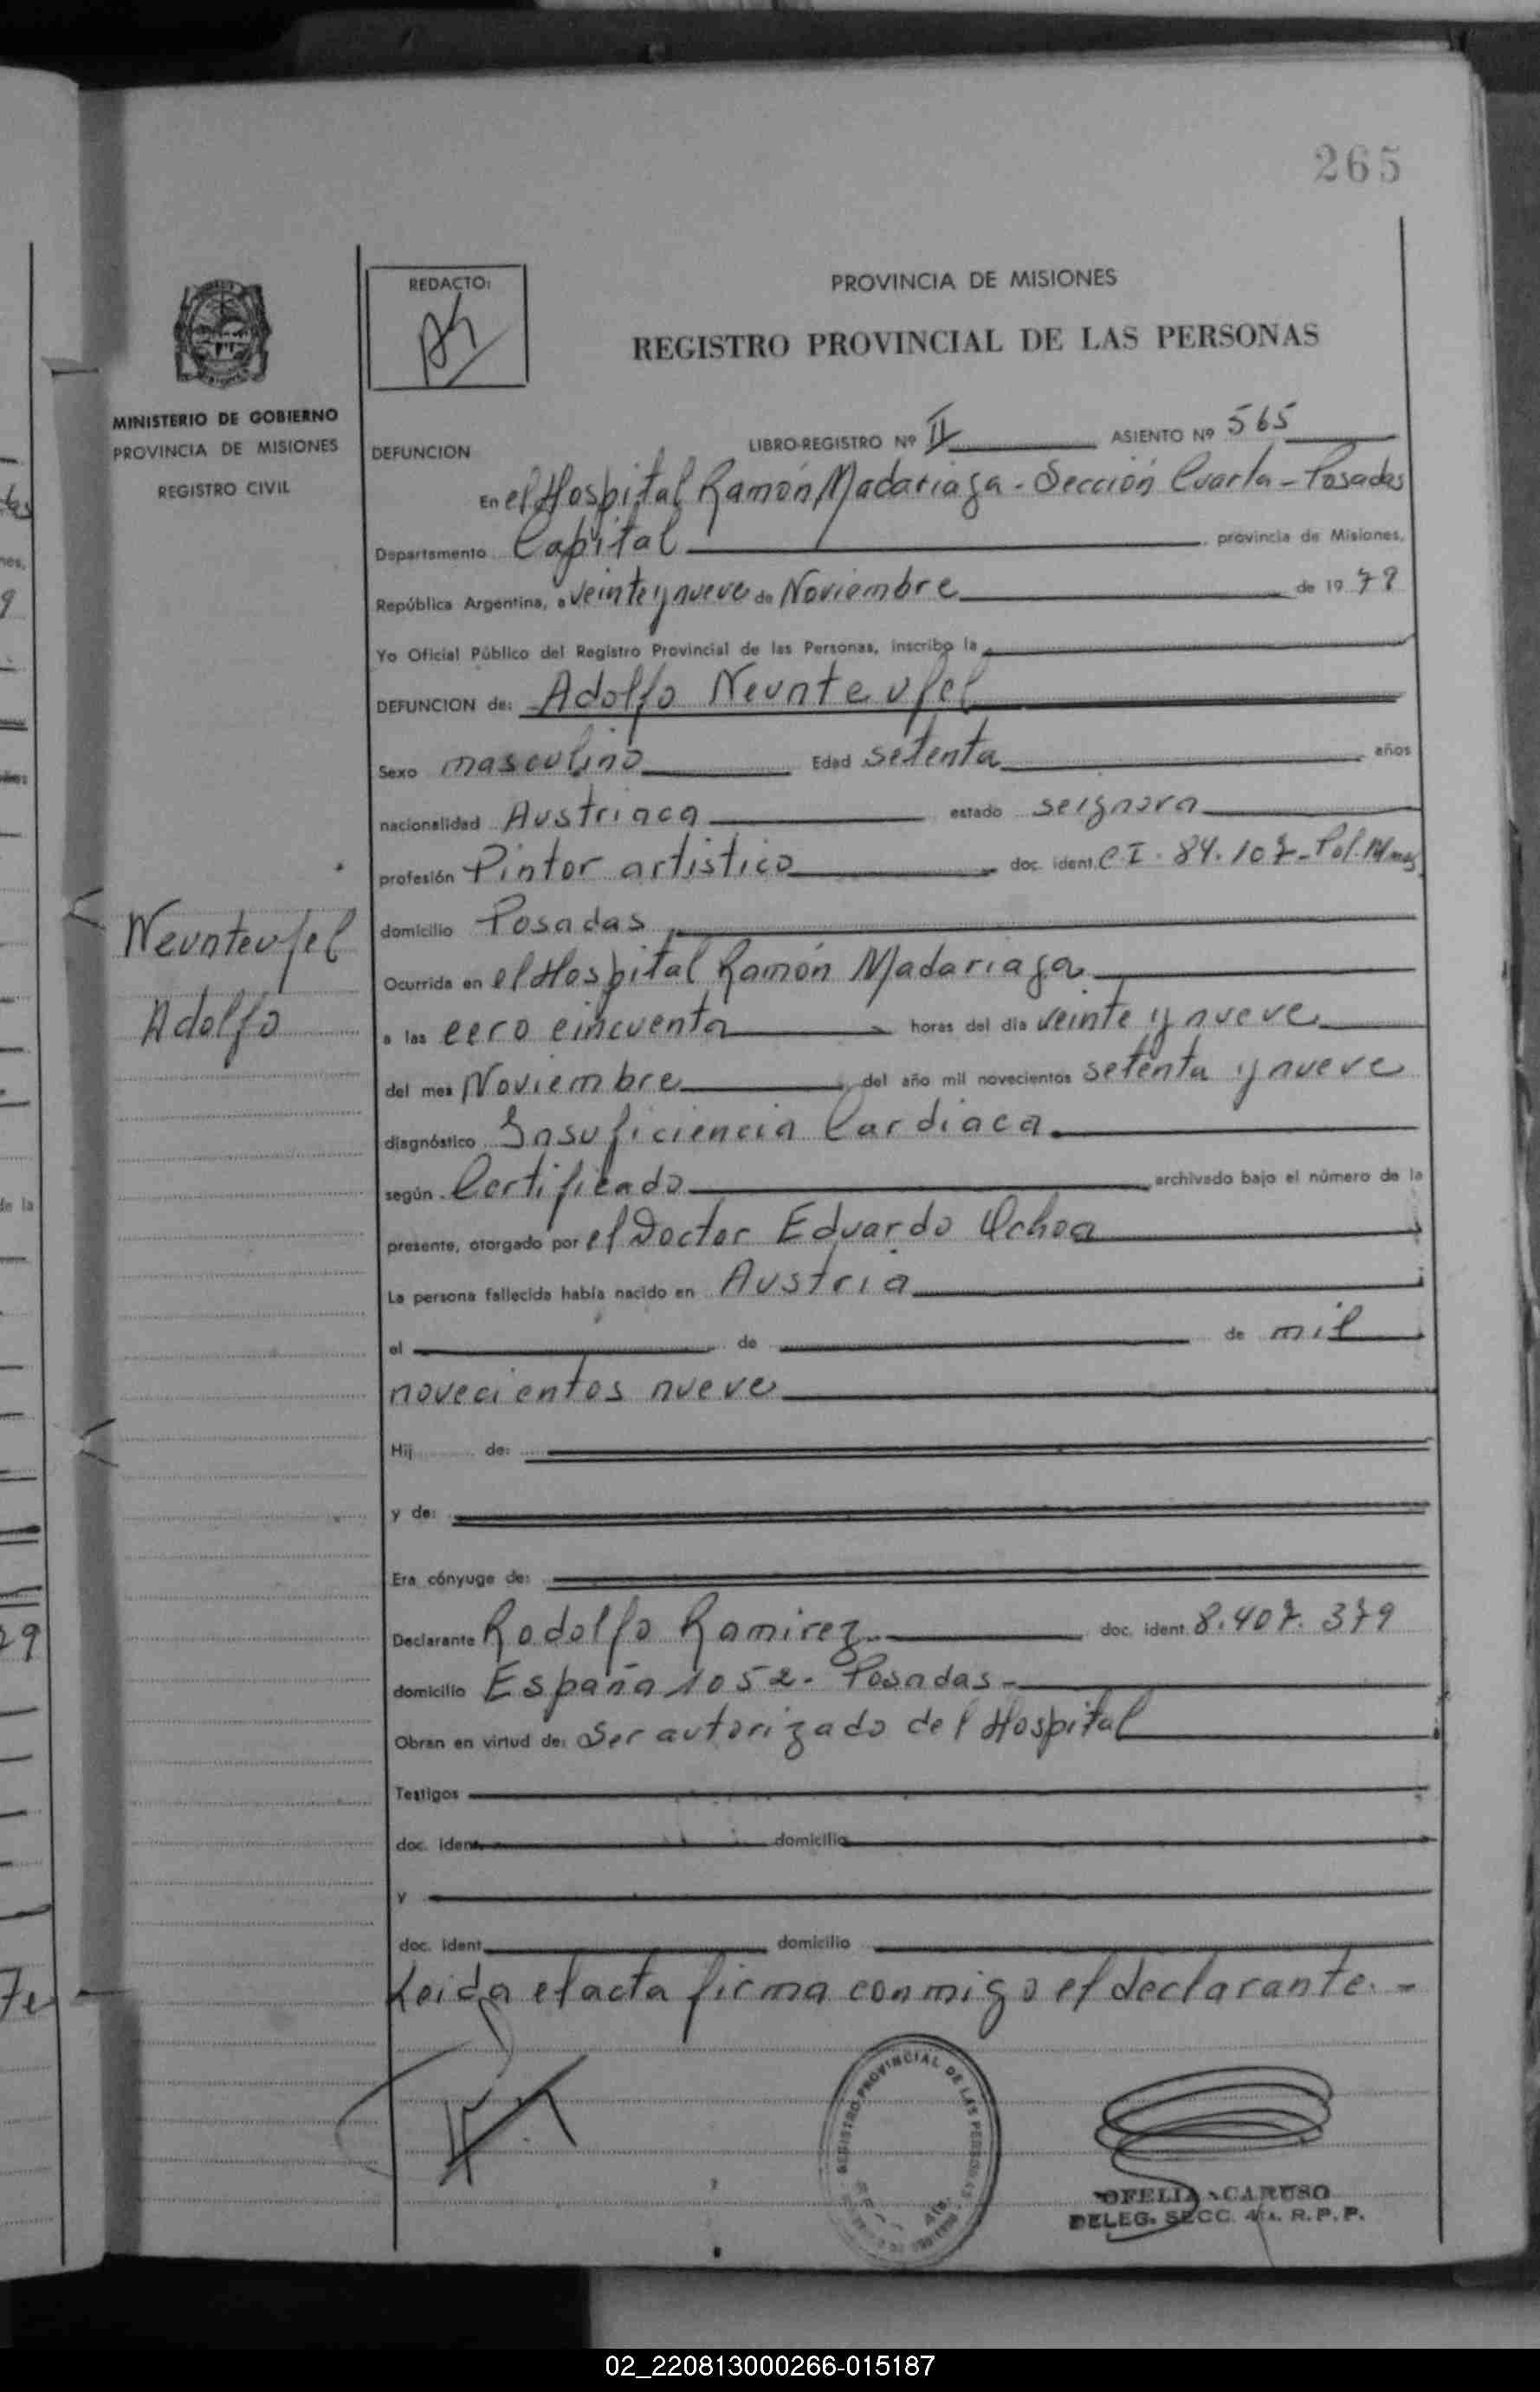 265
REDACTO:
PROVINCIA DE MISIONES
REGISTRO PROVINCIAL DE LAS PERSONAS
MINISTERIO DE GOBIERNO
PROVINCIA DE MISIONES
REGISTRO CIVIL
DEFUNCION LIBRO-REGISTRO Nº II ASIENTO Nº 565
En el Hospital Ramón Madariaga - Sección Cuarta - Posadas
Departamento Capital, provincia de Misiones,
República Argentina, a veinte y nueve de Noviembre de 1979
Yo Oficial Público del Registro Provincial de las Personas, inscribo la
DEFUNCION de: Adolfo Neunteufel
Sexo masculino Edad setenta años
nacionalidad Austriaca estado se ignora
profesión Pintor artistico doc. ident. C.I. 84.107 - Pol. Mnes
domicilio Posadas
Neunteufel
Adolfo
Ocurrida en el Hospital Ramón Madariaga
a las cero cincuenta horas del día veinte y nueve
del mes Noviembre, del año mil novecientos setenta y nueve
diagnóstico Insuficiencia Cardiaca
según Certificado, archivado bajo el número de la
presente, otorgado por el Doctor Eduardo Ochoa
La persona fallecida había nacido en Austria
el de de mil
novecientos nueve
Hij de:
y de:
Era cónyuge de:
Declarante Rodolfo Ramirez doc. ident. 8.407.379
domicilio España 1052 - Posadas -
Obran en virtud de: Ser autorizado del Hospital
Testigos
doc. ident. domicilio
y
doc. ident. domicilio
Leida el acta firma conmigo el declarante. -
REGISTRO PROVINCIAL DE LAS PERSONAS
OFELIA CARUSO
DELEG. SECC. 4ta. R.P.P.
02_220813000266-015187